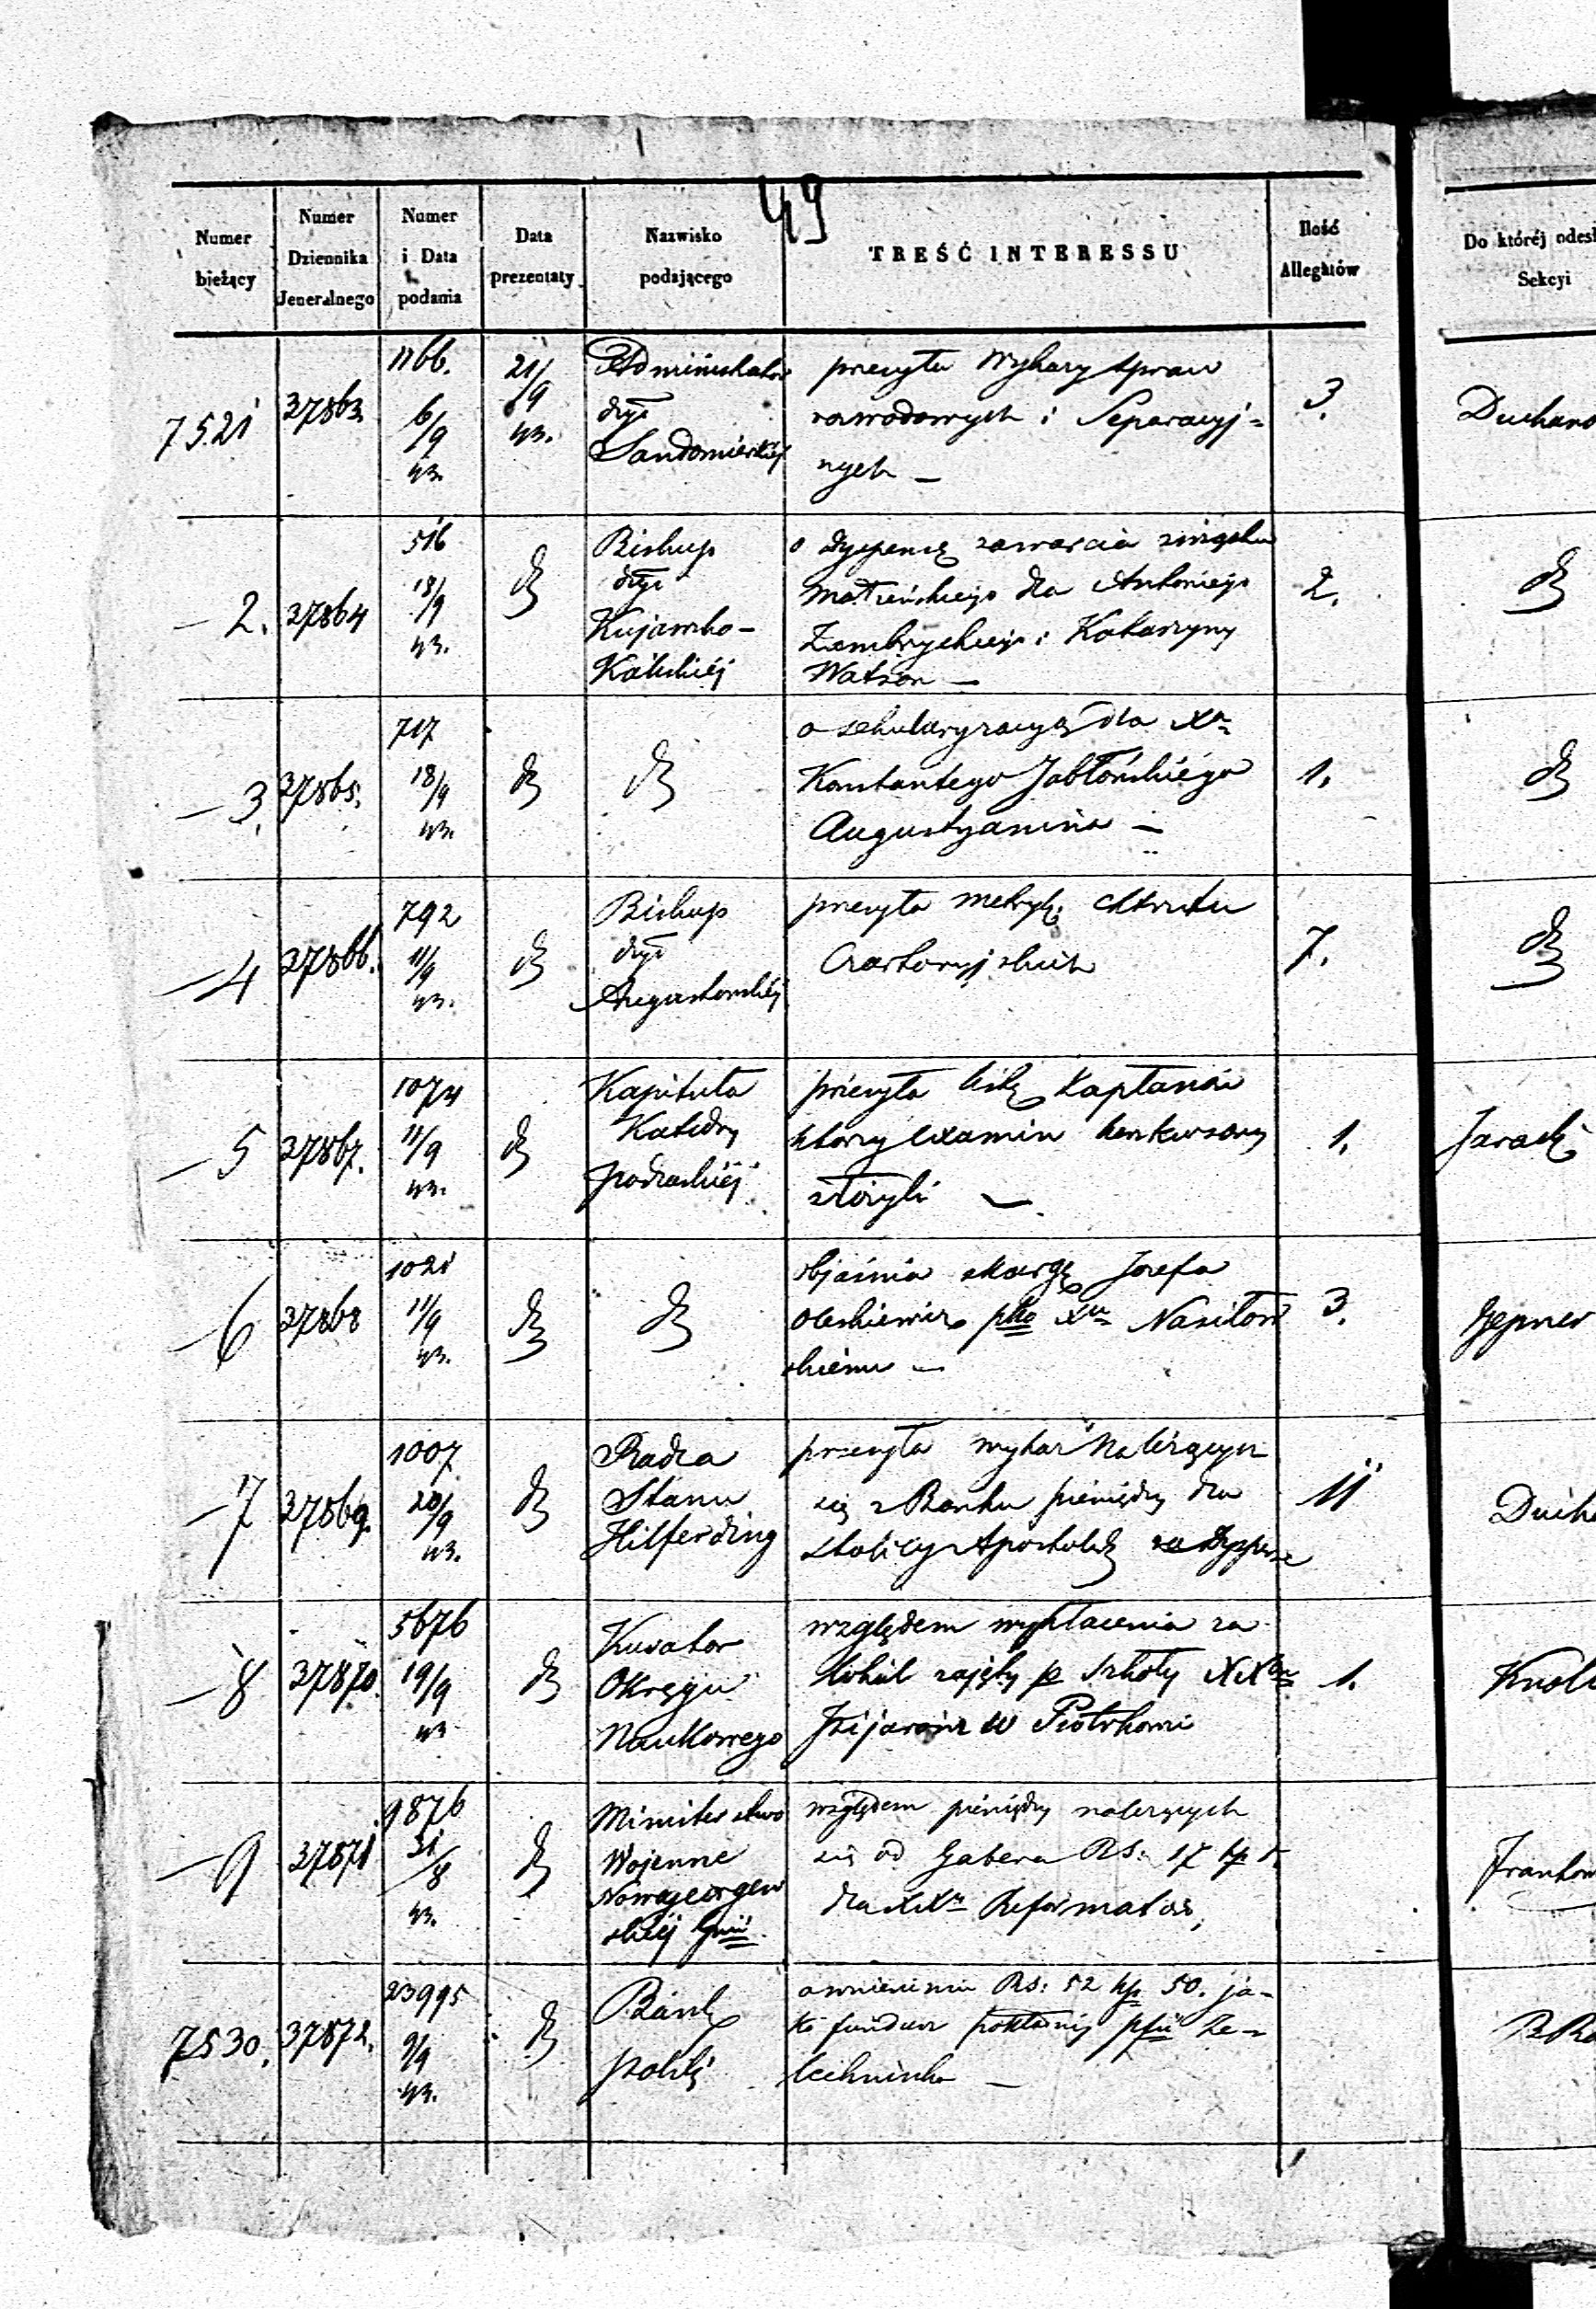 49
Numer bieżący
Numer Dziennika Jeneralnego
Numer i Data podania
Data prezentaty
Nazwisko podającego
TREŚĆ INTERESSU
Ilość Allegatów
Do któréj odes
Sekcyi
7521
37863
1166.
6/9
43.
21/9
43.
Administrator
dyi
Sandomierskiéj
przesyła Wykazy spraw
rozwodowych i Separacyj=
nych —
3.
— 2.
37864
516
18/9
43.
Biskup
dyi
Kujawsko-
Kaliskiéj
o dyspensę zawarcia związku
Małżeńskiego dla Antoniego
i Katarzyny
Watson —
2.
— 3.
37865.
717
18/9
43.
o sekularyzacyą dla Xa
Konstantego Jabłońskiégo
Augustyanina —
1.
— 4
37866.
792
11/9
43.
Biskup
dyi
Augustowskiéj
przesyła metryki chrztu
Czartoryjskich
7.
— 5
37867.
1074
11/9
43.
Kapituła
Katedry
podlaskiéj
przesyła listę Kapłanów
którzy examin konkursowy
złożyli —
1.
Jaracz
— 6
37868
1021
11/9
43.
objaśnia skargę Józefa
Oleskiewicza pko Xu Nasiłow
skiému —
3.
Hepner
— 7
37869.
1007
20/9
43.
Radca
Stanu
Hilferding
przesyła wykaz należących
się z Banku pieniędzy dla
Stolicy Apostolsk za dyspense
11
— 8
37870.
5676
19/9
43
Kurator
Okręgu
Naukowego
względem wypłacenia za
lokal zajęty pr Szkoły XXów
Pijarów w Piotrkowie
1.
— 9
37871
9876
31/8
43.
Ministerstwo
Wojenne
Nowogeorgiew
skiéj Gnii
względem pieniędzy należących
się od Gabera RS: 17 kp 1.
dla XXw Reformatów,
7530.
37872.
23995
9/9
43.
Bank
polski
o wniesieniu RS: 52 kp 50. ja-
ko fundusz pokładny pfii Że-
lechińska —